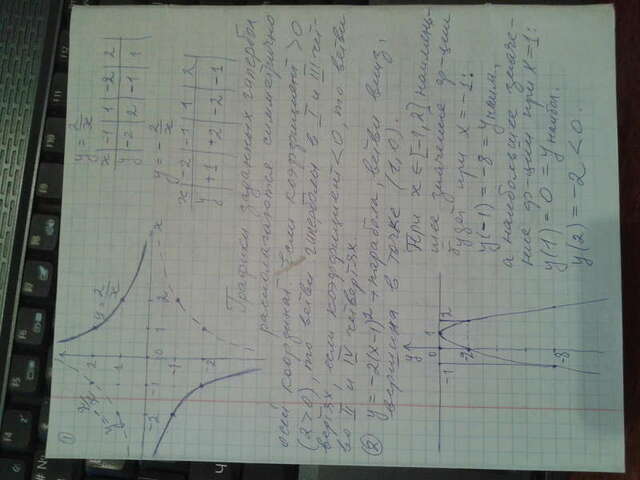 ①
y = 2/x
x | -1 | 1 | -2 | 2
y | -2 | 2 | -1 | 1
y = -2/x
x | -2 | -1 | 1 | 2
y | +1 | +2 | -2 | -1
y = 2/x
Графики заданных гипербол
располагаются симметрично
осей координат. Если коэффициент >0
(2>0), то ветви гиперболы в I и III чет-
вертях, если коэффициент <0, то ветви
во II и IV четвертях.
② y = -2(x-1)² → парабола, ветви вниз,
вершина в точке (1,0).
При x∈[-1,2] наимень-
шее значение ф-ции
будет при x = -1:
y(-1) = -8 = y наим,
а наибольшее значе-
ние ф-ции при x = 1:
y(1) = 0 = y наиб.
y(2) = -2 < 0.